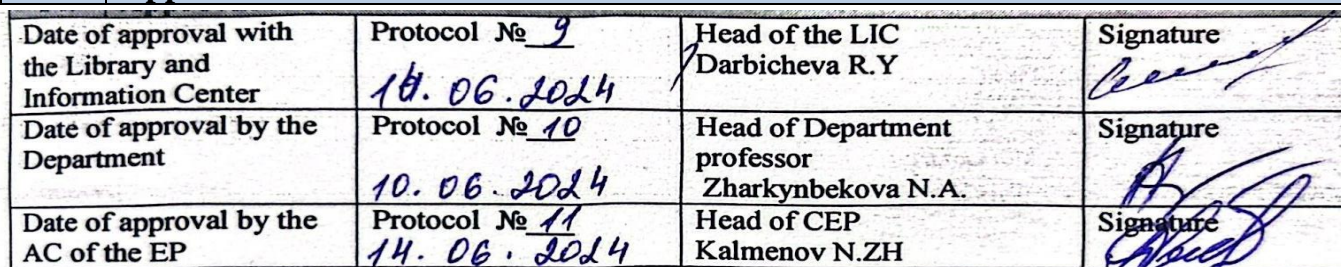 Date of approval with
the Library and
Information Center
Protocol № 9
06.2024
Head of the LIC
Darbicheva R.Y
Signature
Date of approval by the
Department
Protocol № 10
10.06.2024
Head of Department
professor
Zharkynbekova N.A.
Signature
Date of approval by the
AC of the EP
Protocol № 11
14.06.2024
Head of CEP
Kalmenov N.ZH
Signature